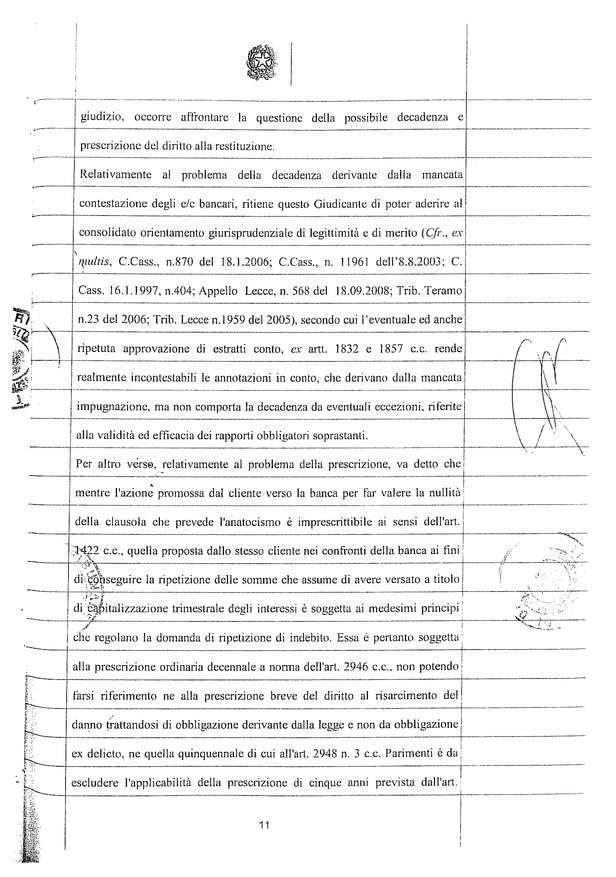 giudizio, occorre affrontare la questione della possibile decadenza e
prescrizione del diritto alla restituzione.
Relativamente al problema della decadenza derivante dalla mancata
contestazione degli e/c bancari, ritiene questo Giudicante di poter aderire al
consolidato orientamento giurisprudenziale di legittimità e di merito (Cfr., ex
multis, C.Cass., n.870 del 18.1.2006; C.Cass., n. 11961 dell'8.8.2003; C.
Cass. 16.1.1997, n.404; Appello Lecce, n. 568 del 18.09.2008; Trib. Teramo
n.23 del 2006; Trib. Lecce n.1959 del 2005), secondo cui l'eventuale ed anche
ripetuta approvazione di estratti conto, ex artt. 1832 e 1857 c.c. rende
realmente incontestabili le annotazioni in conto, che derivano dalla mancata
impugnazione, ma non comporta la decadenza da eventuali eccezioni, riferite
alla validità ed efficacia dei rapporti obbligatori soprastanti.
Per altro verso, relativamente al problema della prescrizione, va detto che
mentre l'azione promossa dal cliente verso la banca per far valere la nullità
della clausola che prevede l'anatocismo è imprescrittibile ai sensi dell'art.
1422 c.c., quella proposta dallo stesso cliente nei confronti della banca ai fini
di conseguire la ripetizione delle somme che assume di avere versato a titolo
di capitalizzazione trimestrale degli interessi è soggetta ai medesimi principi
che regolano la domanda di ripetizione di indebito. Essa è pertanto soggetta
alla prescrizione ordinaria decennale a norma dell'art. 2946 c.c., non potendo
farsi riferimento ne alla prescrizione breve del diritto al risarcimento del
danno trattandosi di obbligazione derivante dalla legge e non da obbligazione
ex delicto, ne quella quinquennale di cui all'art. 2948 n. 3 c.c. Parimenti è da
escludere l'applicabilità della prescrizione di cinque anni prevista dall'art.
11